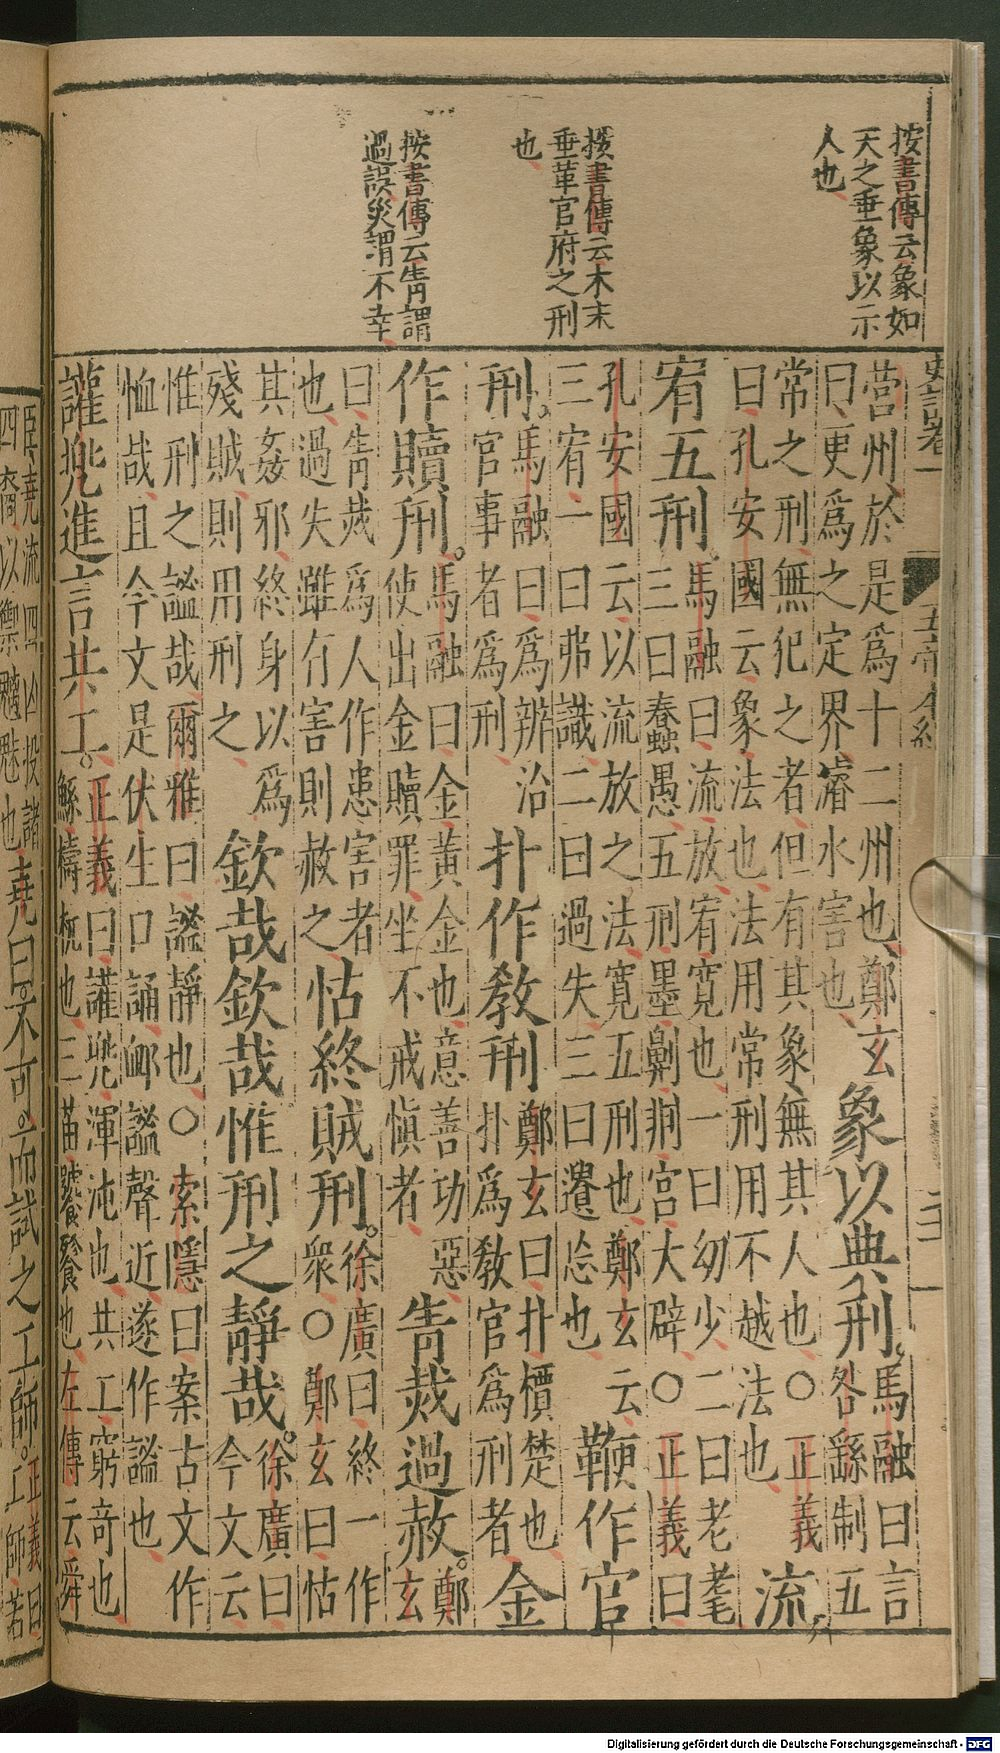 按書傳云象如
天之垂象以示
人也
按書傳云木末
垂革官府之刑
也
按書傳云眚謂
過誤災謂不幸
營州於是爲十二州也鄭玄
曰更爲之定界濬水害也
象以典刑
馬融曰言
咎繇制五
常之刑無犯之者但有其象無其人也○正義
曰孔安國云象法也法用常刑用不越法也
流
宥五刑
馬融曰流放宥寛也一曰幼少二曰老耄
三曰蠢愚五刑墨劓剕宮大辟○正義曰
孔安國云以流放之法寛五刑也鄭玄云
三宥一曰弗識二曰過失三曰遺忘也
鞭作官
刑
馬融曰爲辨治
官事者爲刑
扑作敎刑
鄭玄曰扑檟楚也
扑爲敎官爲刑者
金
作贖刑
馬融曰金黃金也意善功惡
使出金贖罪坐不戒愼者
眚烖過赦
鄭
玄
曰眚烖爲人作患害者
也過失雖有害則赦之
怙終賊刑
徐廣曰終一作
衆○鄭玄曰怙
其姦邪終身以爲
殘賊則用刑之
欽哉欽哉惟刑之靜哉
徐廣曰
今文云
惟刑之謐哉爾雅曰謐靜也○索隱曰案古文作
恤哉且今文是伏生口誦卹謐聲近遂作謐也
讙兜進言共工
正義曰讙兜渾沌也共工窮奇也
鯀檮杌也三苗饕餮也左傳云舜
臣堯流四凶投諸
四裔以禦魑魅也
堯曰不可而試之工師
正義曰
工師若
Digitalisierung gefördert durch die Deutsche Forschungsgemeinschaft - DFG